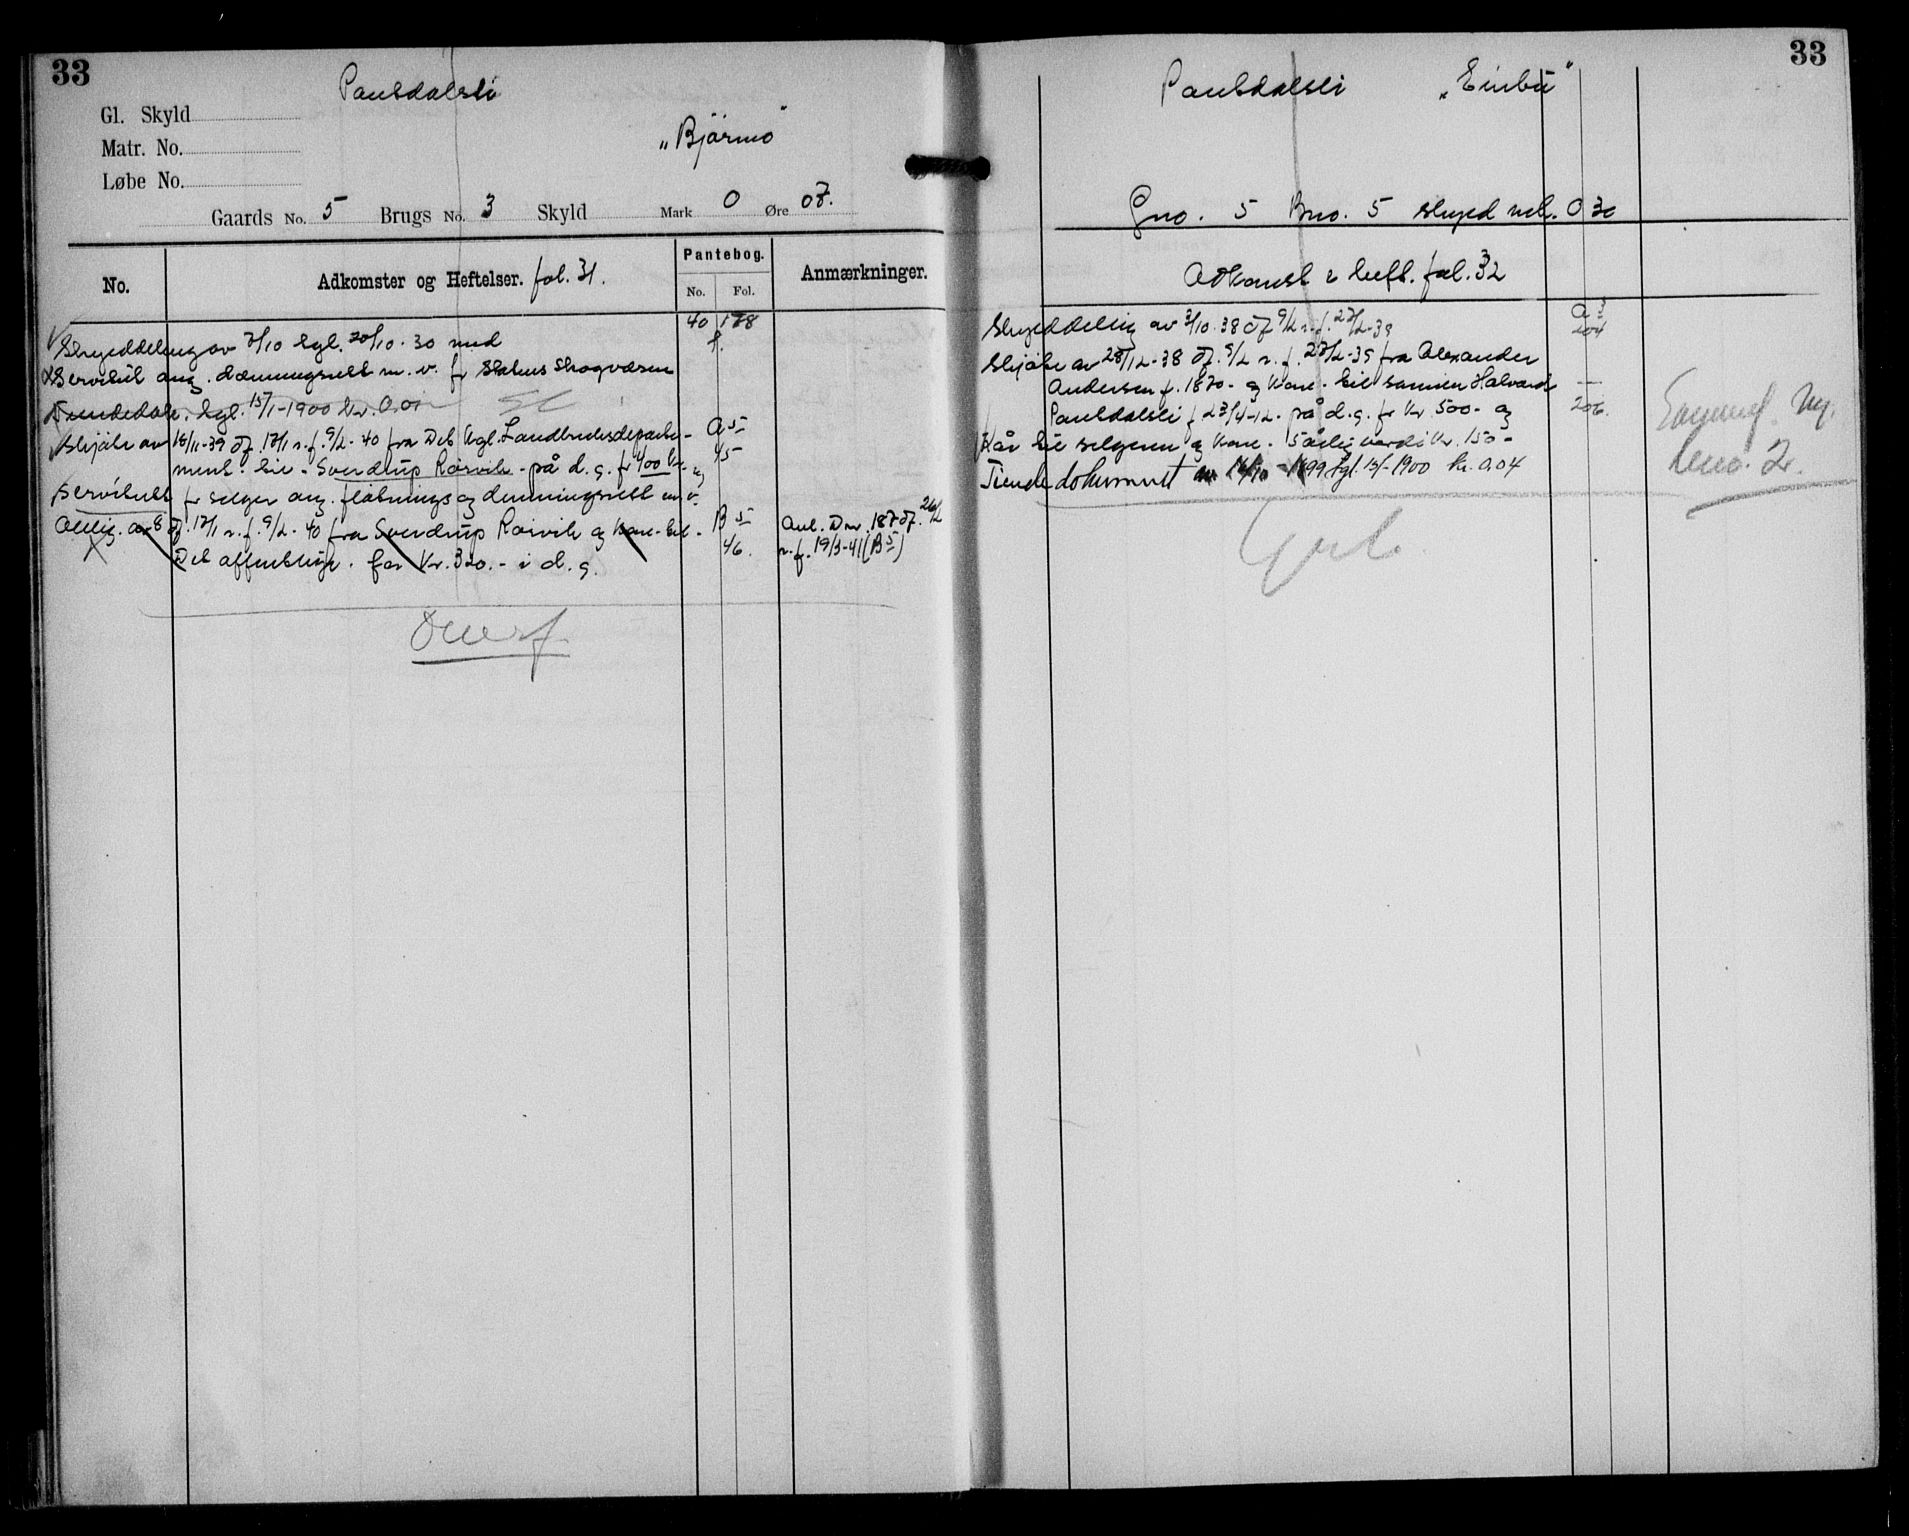 33
Paulsdalsli
Gl. Skyld
Matr. No.
„Bjørmo"
Løbe No.
Gaards No. 5 Brugs No. 3 Skyld Mark 0 Øre 07.
No.
Adkomster og Heftelser. fol. 31.
Pantebog.
No. Fol.
Anmærkninger.
Skylddeling av 7/10 tgl. 20/10-30 med
40 178
Servitut ang. dæmningsrett m. v. fr Statens Skogvæsen
f.
Tiendedok. tgl. 15/1-1900 kr. 0.01
Skjøte av 18/11-39 df. 17/1 n.f. 9/2-40 fra Det kgl. Landbruksdeparte-
A 5
ment. til - Sverdrup Røsvik - på d. g. fr 400 kr. og
45
servitutt fr selger ang. fløtnings og demningsrett m. v.
Oblig. av 8 df. 17/1 n.f. 9/2-40 fra Sverdrup Røsvik og kone - til -
B 5
Anl. Dnr. 187 df. 26/2
Det offentlige. for kr. 320.- i d. g.
46.
n.f. 19/3-41 (B 5)
Overf
33
Paulsdalsli „Einbu"
Gno. 5 Bno. 5 skyld mk. 0 30
Adkomst & heft. fol. 32
Skylddeling av 3/10.38 df 9/2 n.f. 27/2-39
A 3
204
Skjøte av 28/12-38 df. 9/2 n.f. 27/2-39 fra Alexander
Andersen f. 1870- og kone - til sønnen Halvard
Paulsdalsli f 23/4-12. på d. g. fr kr 500- og
206.
Kår til selgeren og kone. 5 årlig verdi kr. 150-
Tiende dokument av 14/10-1899 tgl. 15/1-1900 kr. 0.04